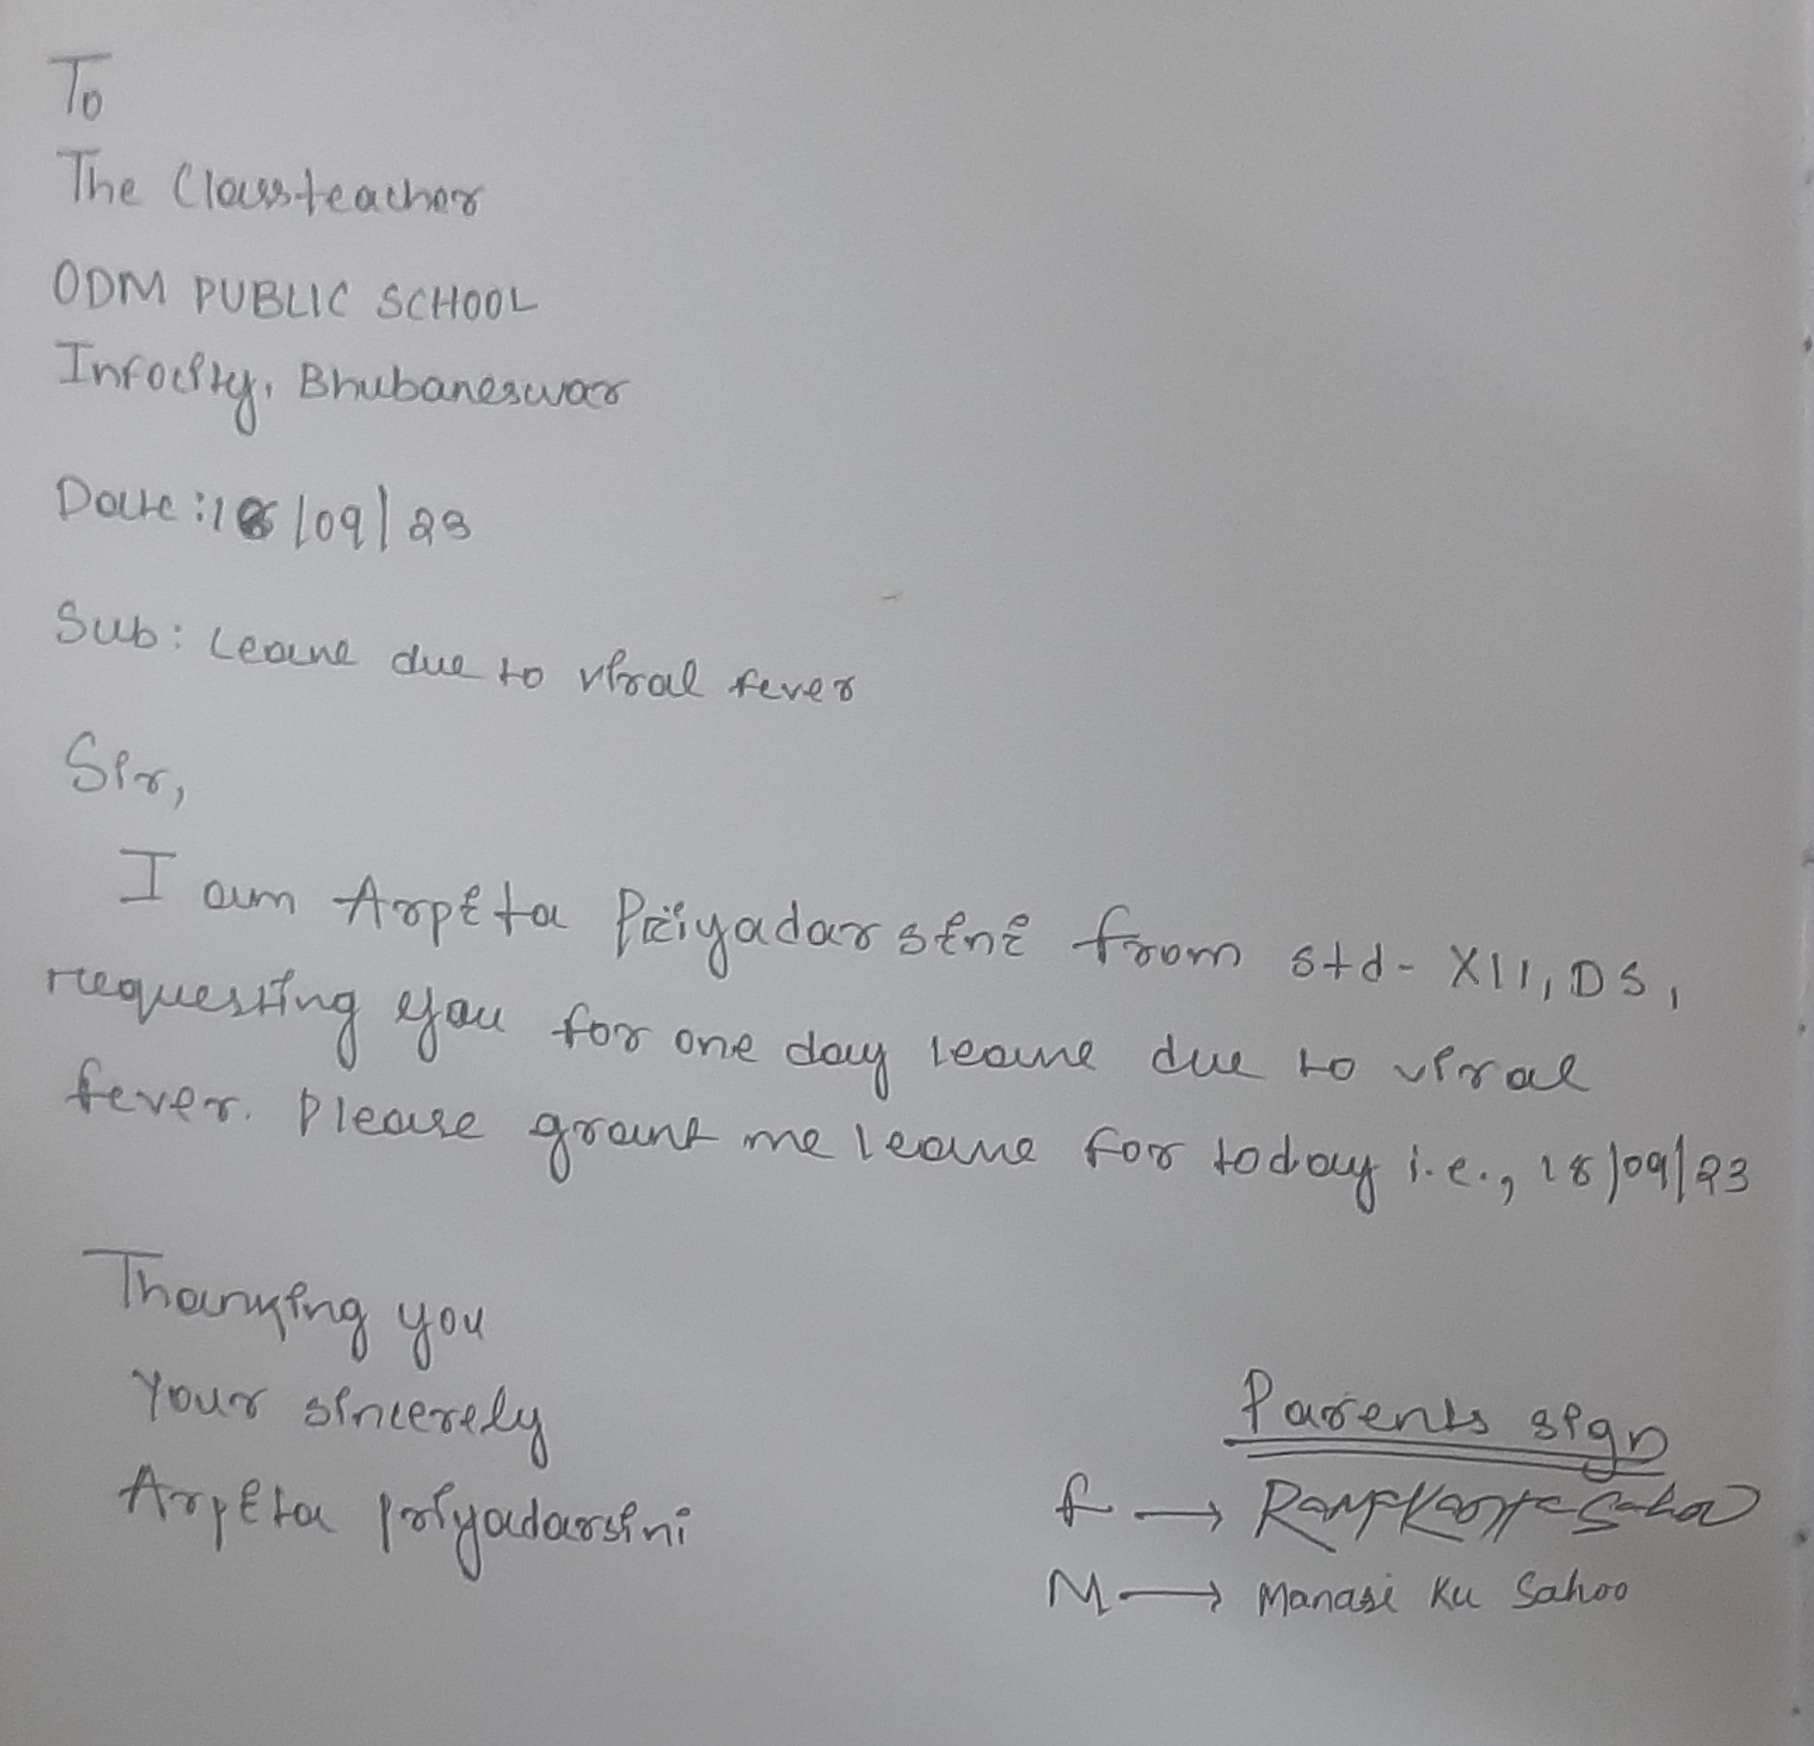 To
The Classteacher
ODM PUBLIC SCHOOL
Infocity, Bhubaneswar
Date: 18/09/23
Sub: Leave due to viral fever
Sir,
I am Arpita Priyadarsini from std- XII, DS,
requesting you for one day leave due to viral
fever. Please grant me leave for today i.e., 18/09/23
Thanking you
Your sincerely
Arpita priyadarsini
Parents sign
f → Sahoo
M → Manasi Ku Sahoo